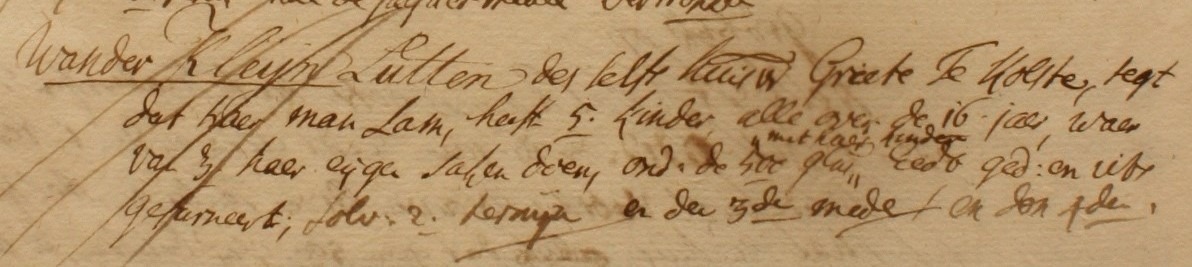 Wander Kleijn Lutten des selfs huisv Griete Te Kolste, segt
dat haer man Lam, heeft 5. kinder alle over de 16 jaer, waer
van 3 haer eijgen saken doen, ond. de 500 glns met haer kinder eedt ged: en
gefurneert, solv. 2. termijn en den 3den mede en den 4den.